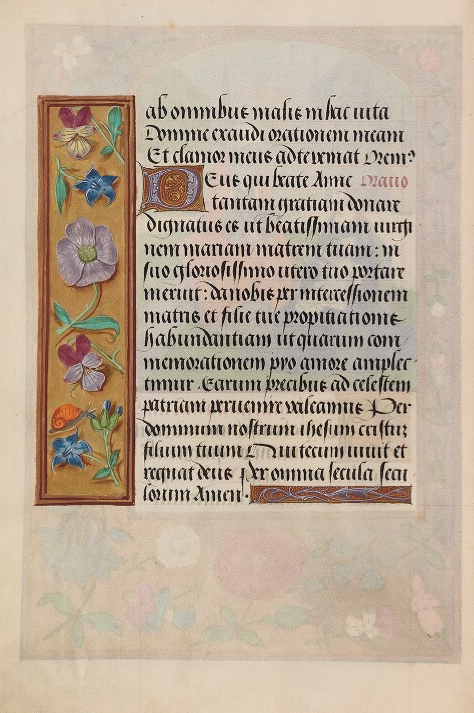 ab omnibus malis in hac uita
Domine exaudi orationem meam
Et clamor meus ad te veniat Orem⁹
Deus qui beate Anne Oratio
tantam gratiam donare
dignatus es ut beatissimam uirgi
nem mariam matrem tuam : in
suo gloriosissimo utero tuo portare
meruit : da nobis per intercessionem
matris et filie tue propitiationis
habundantiam ut quarum com
memorationem pro amore amplec
timur . Earum precibus ad celestem
patriam peruenire valeamus Per
dominum nostrum ihesum cristum
filium tuum Qui tecum uiuit et
regnat deus Per omnia secula secu
lorum Amen .